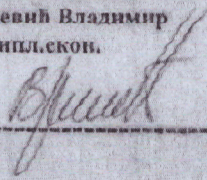 евић Владимир
ипл.екон.